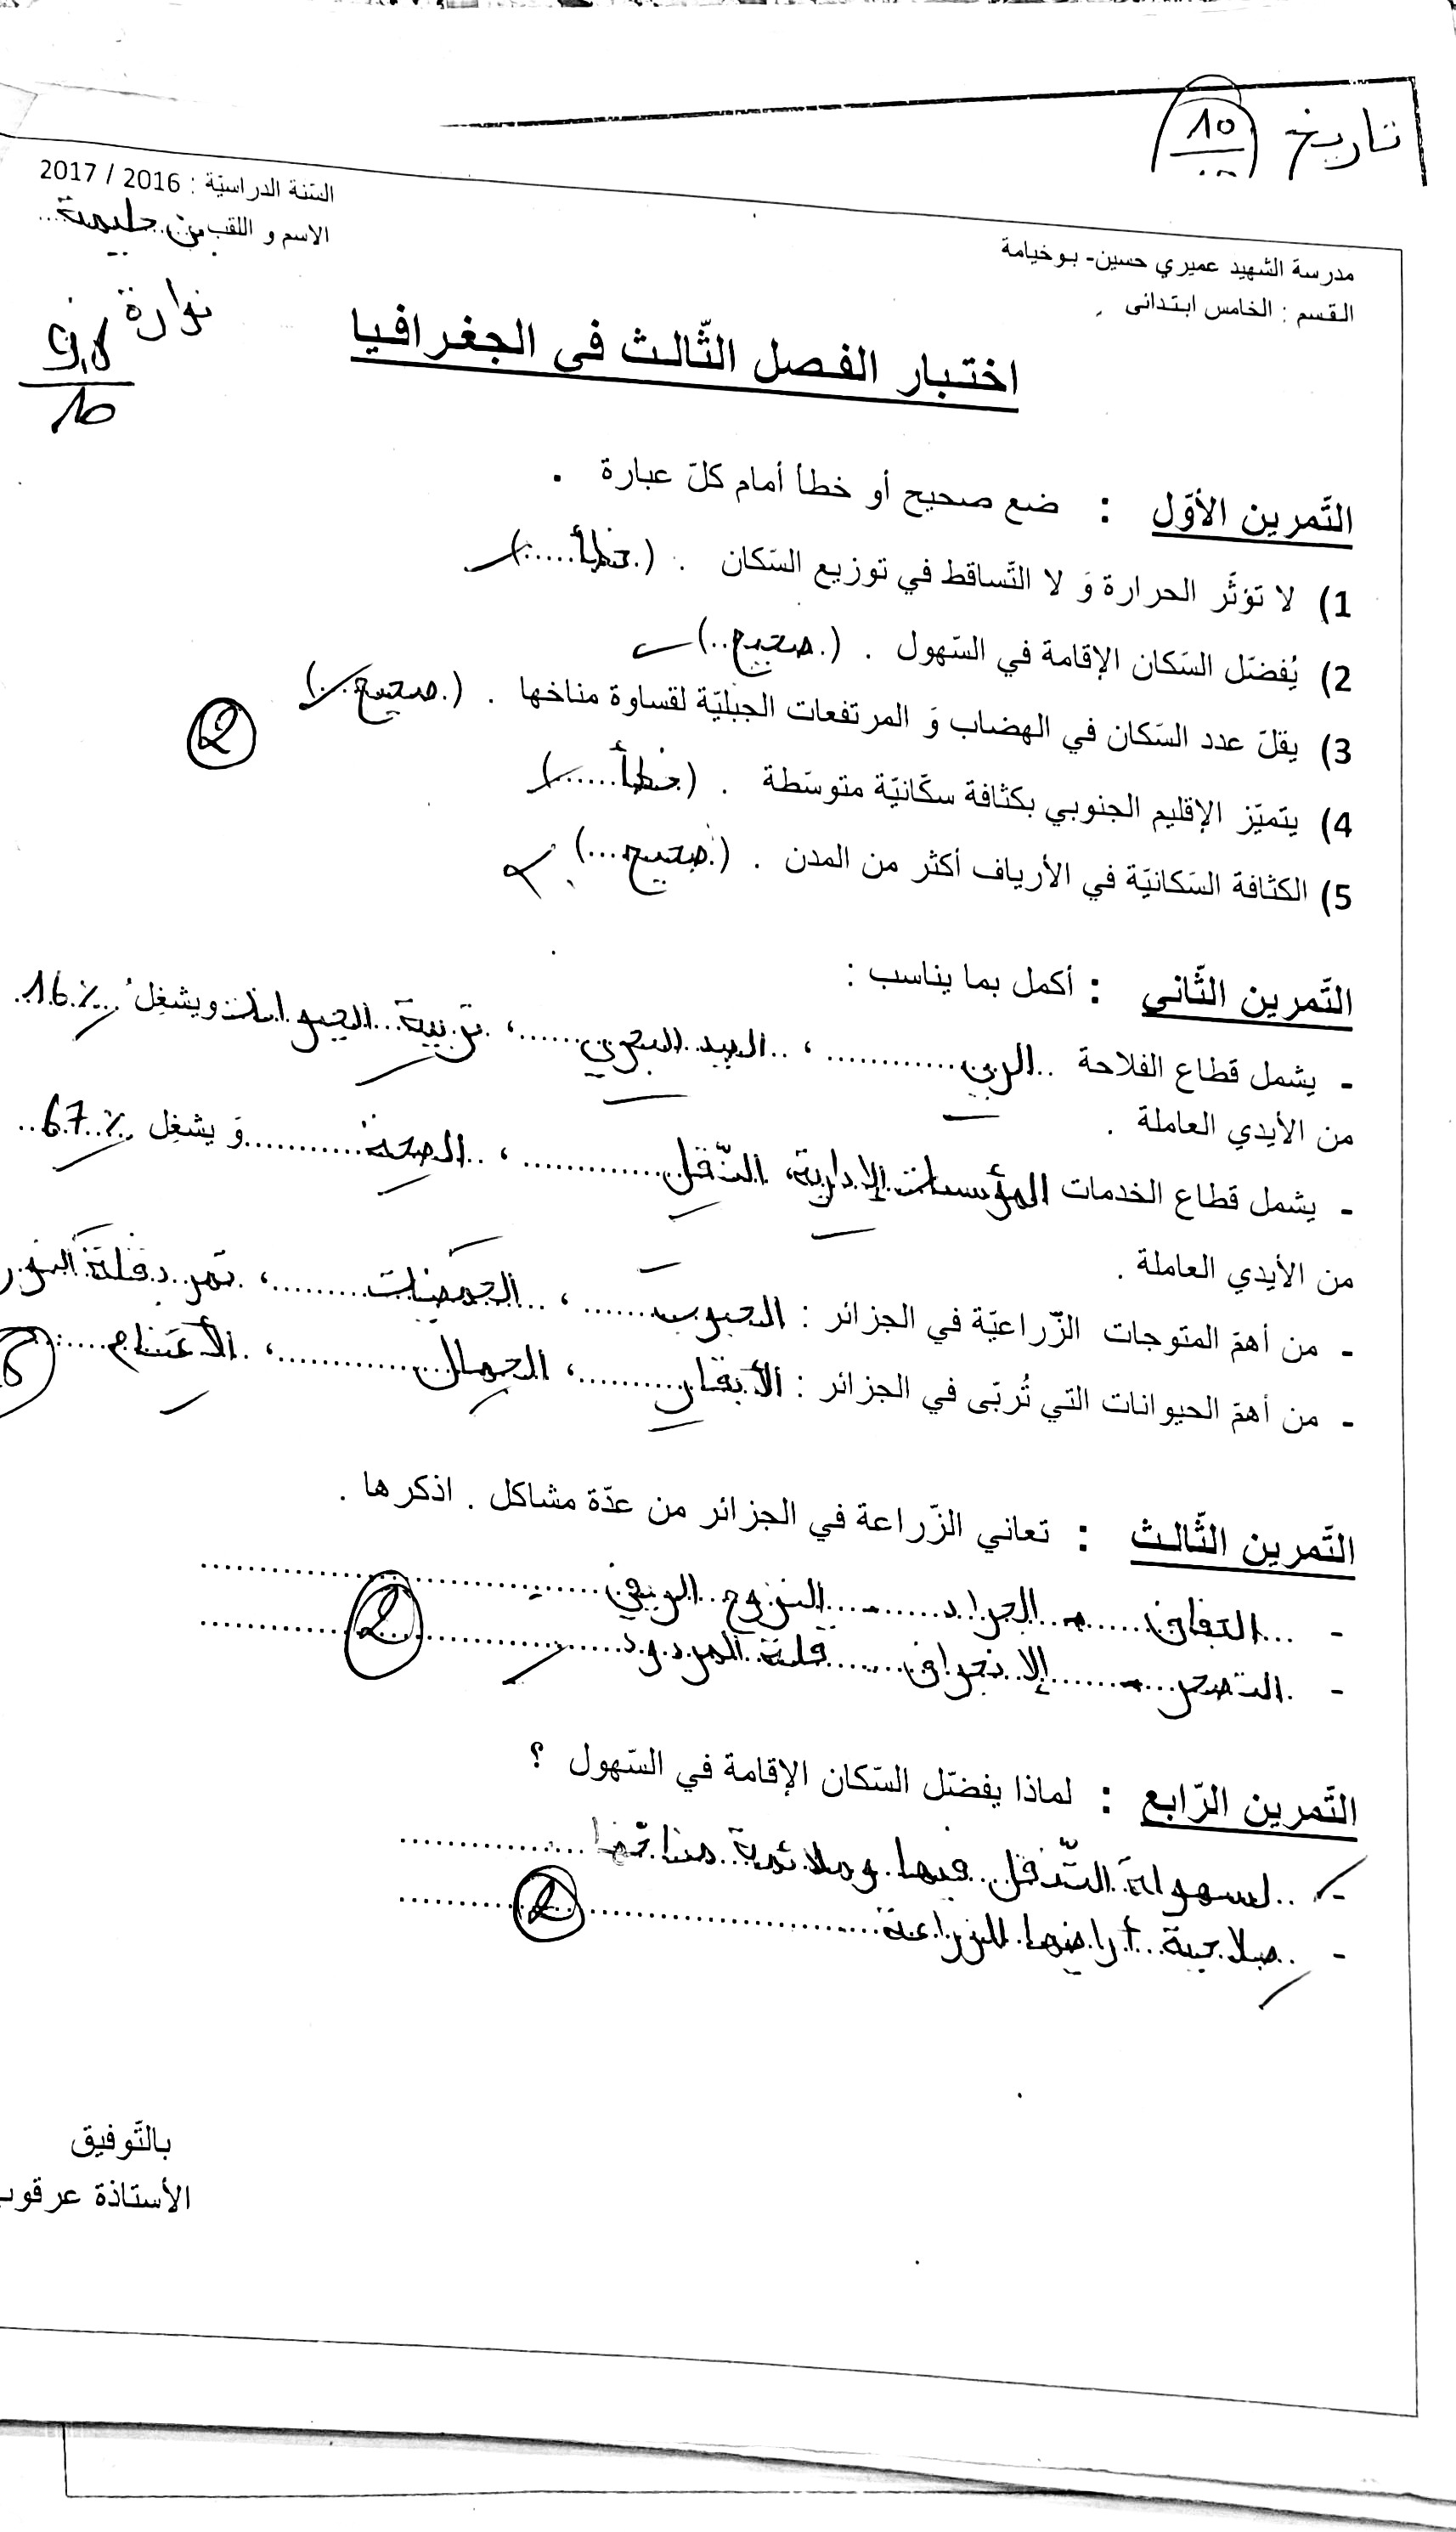 تاريخ 10
السّنة الدراسيّة : 2016 / 2017
الاسم و اللقب بن حليمة
نوارة
مدرسة الشهيد عميري حسين- بوخيامة
القسم : الخامس ابتدائي
9,5
10
اختبار الفصل الثّالث في الجغرافيا
التّمرين الأوّل : ضع صحيح أو خطأ أمام كلّ عبارة .
1) لا تؤثّر الحرارة وَ لا التّساقط في توزيع السّكان . (خطأ......)
2) يُفضّل السّكان الإقامة في السّهول . (صحيح..)
3) يقلّ عدد السّكان في الهضاب وَ المرتفعات الجبليّة لقساوة مناخها . (صحيح...)
2
4) يتميّز الإقليم الجنوبي بكثافة سكّانيّة متوسّطة . (خطأ......)
5) الكثافة السّكانيّة في الأرياف أكثر من المدن . (صحيح...)
التّمرين الثّاني : أكمل بما يناسب :
- يشمل قطاع الفلاحة ..الري............ ، ..الصيد البحري......، تربية الحيوانات ويشغل 16٪
من الأيدي العاملة .
- يشمل قطاع الخدمات المؤسسات الإدارية، النّقل............ ، ..الصحة...........وَ يشغل 67٪
من الأيدي العاملة .
- من أهمّ المتوجات الزّراعيّة في الجزائر : الحبوب...... ، ..الحمضيات........، تمر دقلة النور
- من أهمّ الحيوانات التي تُربّى في الجزائر : الأبقار.........، الجمال............، الأغنام......
التّمرين الثّالث : تعاني الزّراعة في الجزائر من عدّة مشاكل . اذكرها .
- ...الجفاف...... - ..الجراد...... - ....النزوح الريفي..............................
- .التصحر - .......الإنجراف.......قلة المردود..............................
2
التّمرين الرّابع : لماذا يفضّل السّكان الإقامة في السّهول ؟
- ..لسهولة التّنقل فيها وملائمة مناخها..............
- ..صلاحية أراضيها للزراعة..............................
2
بالتّوفيق
الأستاذة عرقوب